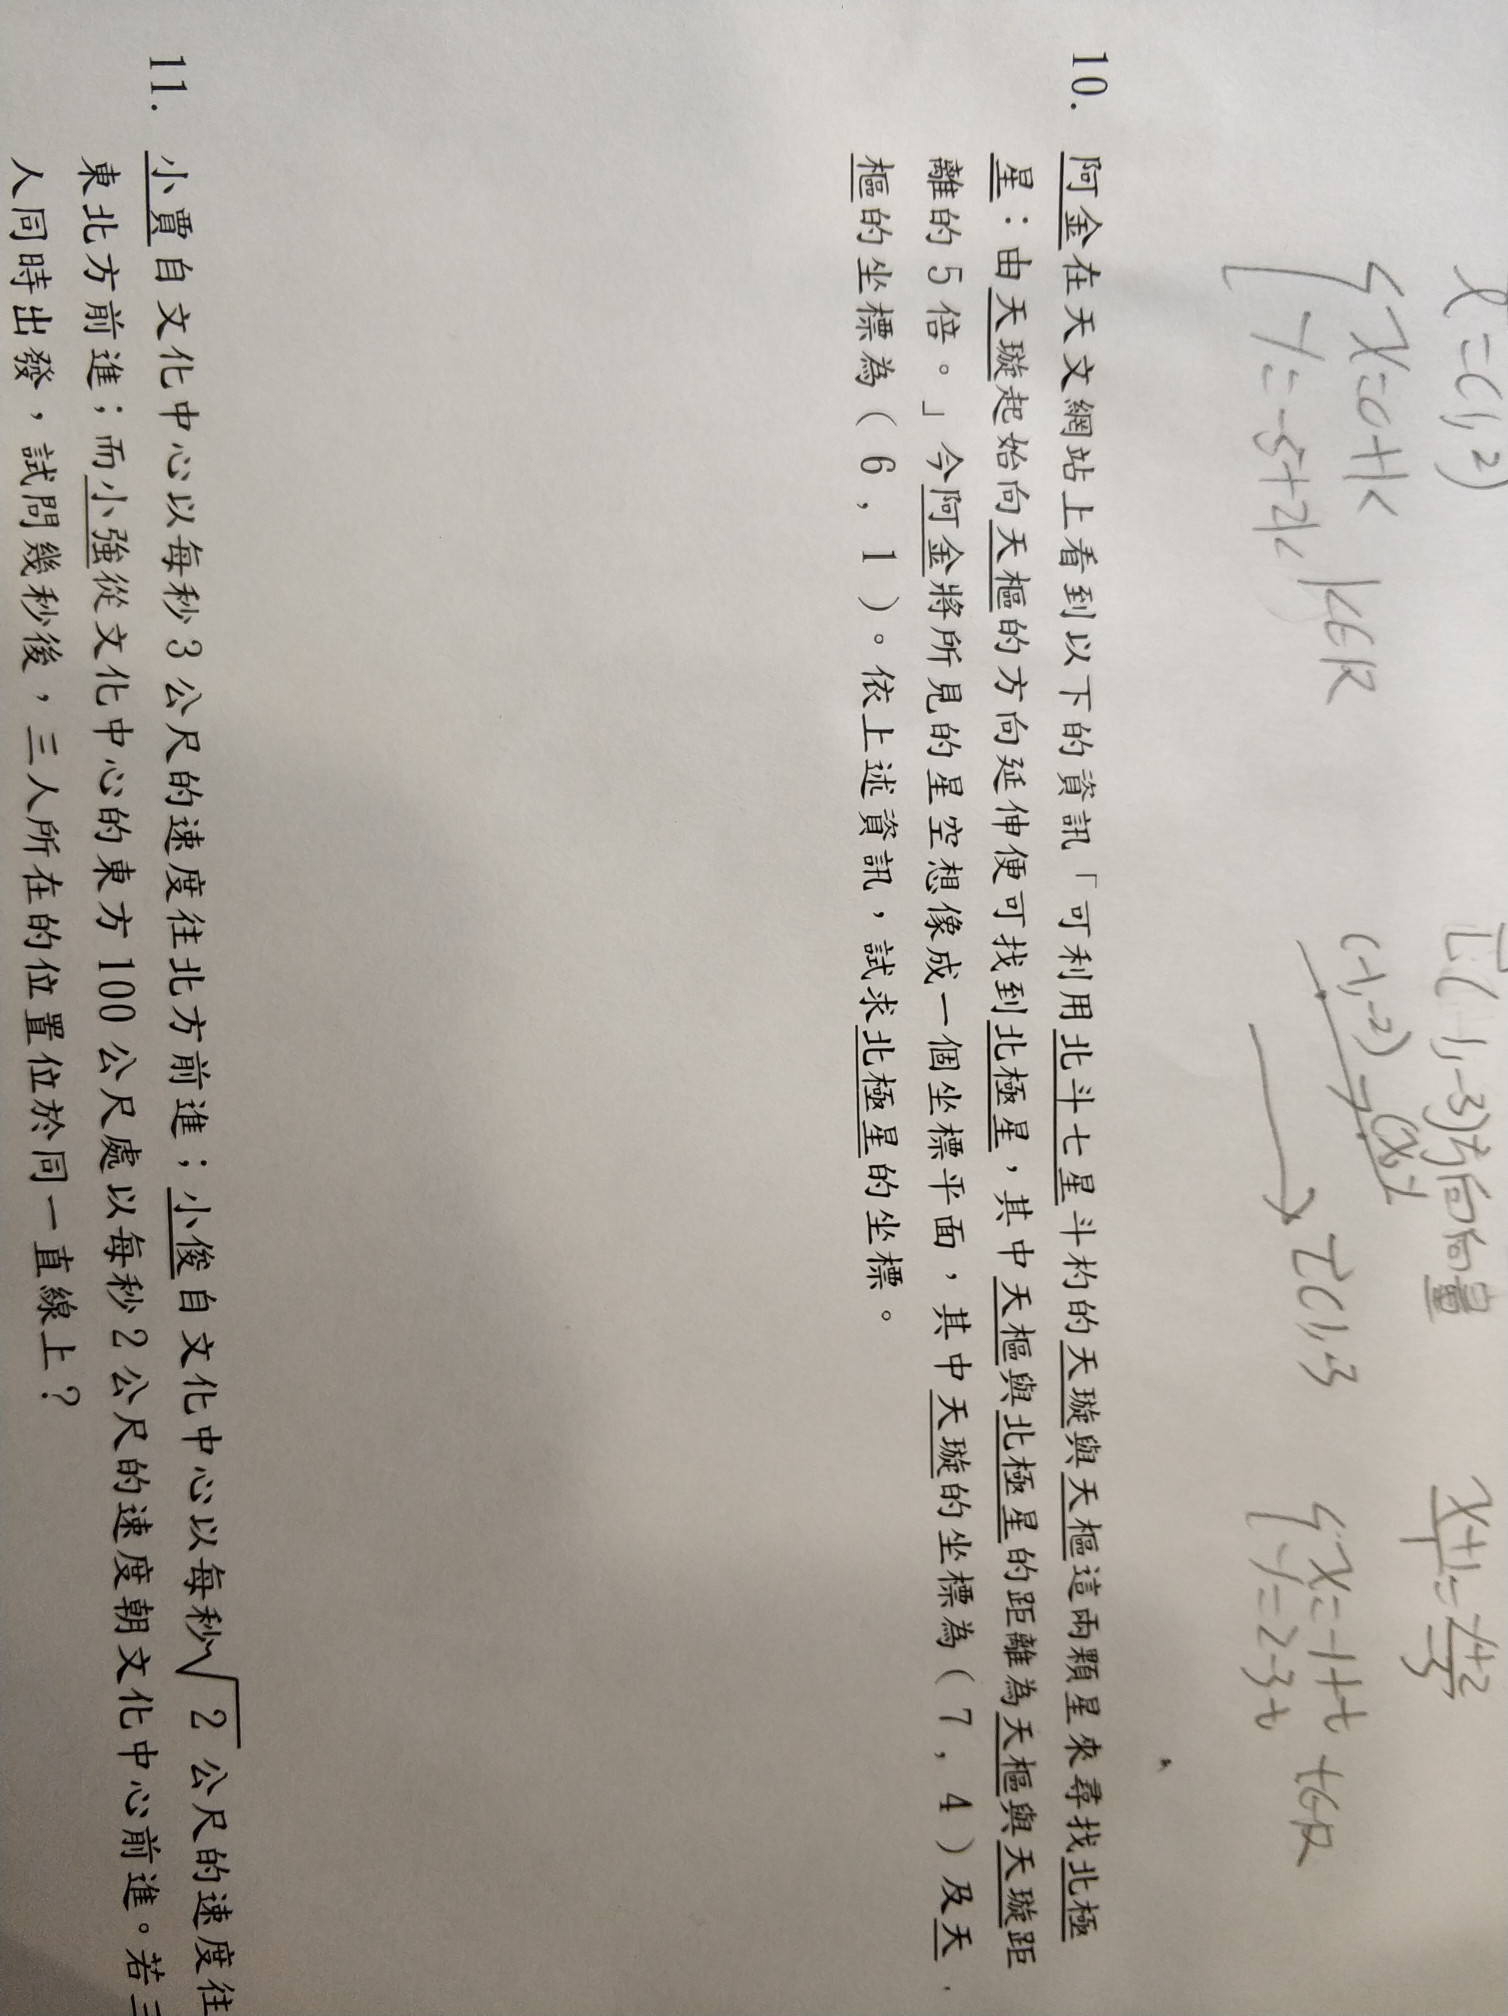 l=(1,2)
x=0+k
y=-5+2k k∈R
L(-1,-3)方向向量
(-1,-2)
(x,y
L(1,-3
x+1/1=y+2/-3
x=-1+t
y=2-3t t∈R
10. 阿金在天文網站上看到以下的資訊「可利用北斗七星斗杓的天璇與天樞這兩顆星來尋找北極
星：由天璇起始向天樞的方向延伸便可找到北極星，其中天樞與北極星的距離為天樞與天璇距
離的5倍。」今阿金將所見的星空想像成一個坐標平面，其中天璇的坐標為（7，4）及天
樞的坐標為（6，1）。依上述資訊，試求北極星的坐標。
11. 小賈自文化中心以每秒3公尺的速度往北方前進；小俊自文化中心以每秒√2公尺的速度往
東北方前進；而小強從文化中心的東方100公尺處以每秒2公尺的速度朝文化中心前進。若三
人同時出發，試問幾秒後，三人所在的位置位於同一直線上？